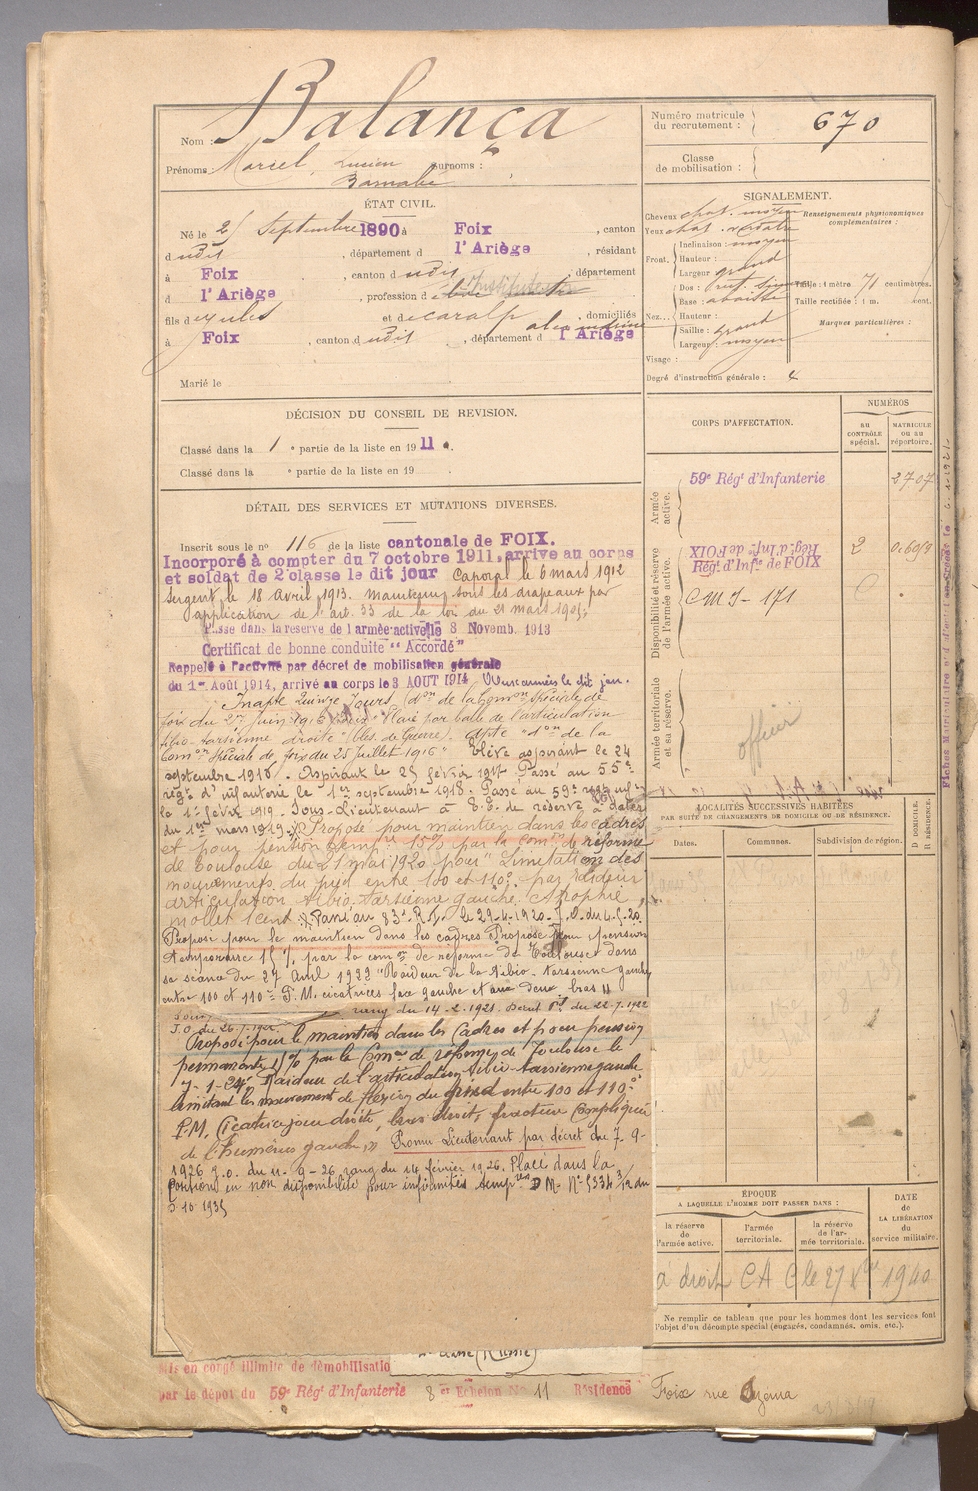 Nom : Balança
Prénoms : Marcel Lucien Surnoms :
Barnabé
ÉTAT CIVIL.
Né le 2 Septembre 1890 à Foix, canton
d udit, département d l'Ariège, résidant
à Foix, canton d udit, département
d l'Ariège, profession d Instituteur
fils d e Jules et d e Caralp, domiciliés
à Foix, canton d udit, département d l'Ariège
Marié le
DÉCISION DU CONSEIL DE REVISION.
Classé dans la 1 e partie de la liste en 1911.
Classé dans la e partie de la liste en 19 .
DÉTAIL DES SERVICES ET MUTATIONS DIVERSES.
Inscrit sous le no 116 de la liste cantonale de FOIX.
Incorporé à compter du 7 octobre 1911, arrive au corps
et soldat de 2e classe le dit jour Caporal le 6 mars 1912
Sergent le 18 Avril 1913. Maintenu sous les drapeaux par
application de l'art. 33 de la loi du 21 mars 1905.
Passé dans la réserve de l'armée active le 8 Novemb. 1913
Certificat de bonne conduite "Accordé"
Rappelé à l'activité par décret de mobilisation générale
du 1er Août 1914, arrivé au corps le 3 AOUT 1914 le dit jour.
Inapte Quinze Jours Don de la Comon Spéciale de
Foix du 27 Juin 1916 Plaie par balle de l'articulation
tibio-tarsienne droite (bles. de Guerre). Apte Don de la
Comon Spéciale de foix du 25 Juillet 1916" Elève aspirant le 24
septembre 1916. Aspirant le 25 février 1917 Passé au 55e
régt d'infanterie le 1er septembre 1918. Passé au 59e regt infie
le 1er février 1919. Sous-Lieutenant à T.T. de réserve à dater
du 1er mars 1919. Proposé pour maintien dans les cadres
et pour pension temp. 15% par la Comon de réforme
de Toulouse du 21 mai 1920 pour "Limitation des
mouvements du pied entre 100 et 110°. par raideur
articulation tibio-tarsienne gauche. Atrophie
mollet 1 cent. Passé au 83e R.I. le 29-4-1920. J.O. du 4.5.20.
Proposé pour le maintien dans les cadres Proposé pour pension
temporaire 15%, par la comon de réforme de Toulouse dans
sa séance du 27 Avril 1922 "Raideur de la tibio-tarsienne gauche
entre 100 et 110° P.M. cicatrices face gauche et aux deux bras"
rang du 14-2-1921. Décret Pt du 22-7-1922
J.O. du 26.7.1922.
Proposé pour le maintien dans les Cadres et pour pension
permanente 15% par la Comon de réforme de Toulouse le
7-1-24 Raideur de l'articulation tibio-tarsienne gauche
limitant les mouvement de flexion du pied entre 100 et 110°
P.M. Cicatrice joue droite, bras droit, fracture Compliquée
de l'humérus gauche," Promu Lieutenant par décret du 7-9-
1926 J.O. du 11-9-26, rang du 14 février 1926. Placé dans la
position en non disponibilité pour infirmités tempres D.M. No 5334 3/12 du
5-10-1935
Mis en congé illimité de démobilisation
par le dépôt du 59e Régt d'Infanterie 8e Echelon No 11 Résidence Foix rue
Numéro matricule
du recrutement : 670
Classe
de mobilisation :
SIGNALEMENT.
Cheveux chat. moyen
Yeux
Front. Inclinaison : moyen
Hauteur :
Largeur grand
Nez... Dos :
Base : abaissé
Hauteur :
Saillie : grand
Largeur : moyen
Visage :
Renseignements physionomiques
complémentaires :
Taille : 1 mètre 71 centimètres.
Taille rectifiée : 1 m. cent.
Marques particulières :
Degré d'instruction générale : 4
CORPS D'AFFECTATION.
NUMÉROS
AU CONTRÔLE spécial.
MATRICULE ou au répertoire.
Armée active.
59e Régt d'Infanterie 2707
Disponibilité et réserve de l'armée active.
Régt d'Infie de FOIX
Régt d'Infie de FOIX
2
CMI - 171
Armée territoriale et sa réserve.
officier
LOCALITÉS SUCCESSIVES HABITÉES
PAR SUITE DE CHANGEMENTS DE DOMICILE OU DE RÉSIDENCE.
Dates. Communes. Subdivision de région.
D DOMICILE.
R RÉSIDENCE.
ÉPOQUE
A LAQUELLE L'HOMME DOIT PASSER DANS :
la réserve de l'armée active.
l'armée territoriale.
la réserve de l'armée territoriale.
DATE de LA LIBÉRATION du service militaire.
a droit CAC le 27 Xbre 1940
Ne remplir ce tableau que pour les hommes dont les services font
l'objet d'un décompte spécial (engagés, condamnés, omis, etc.).